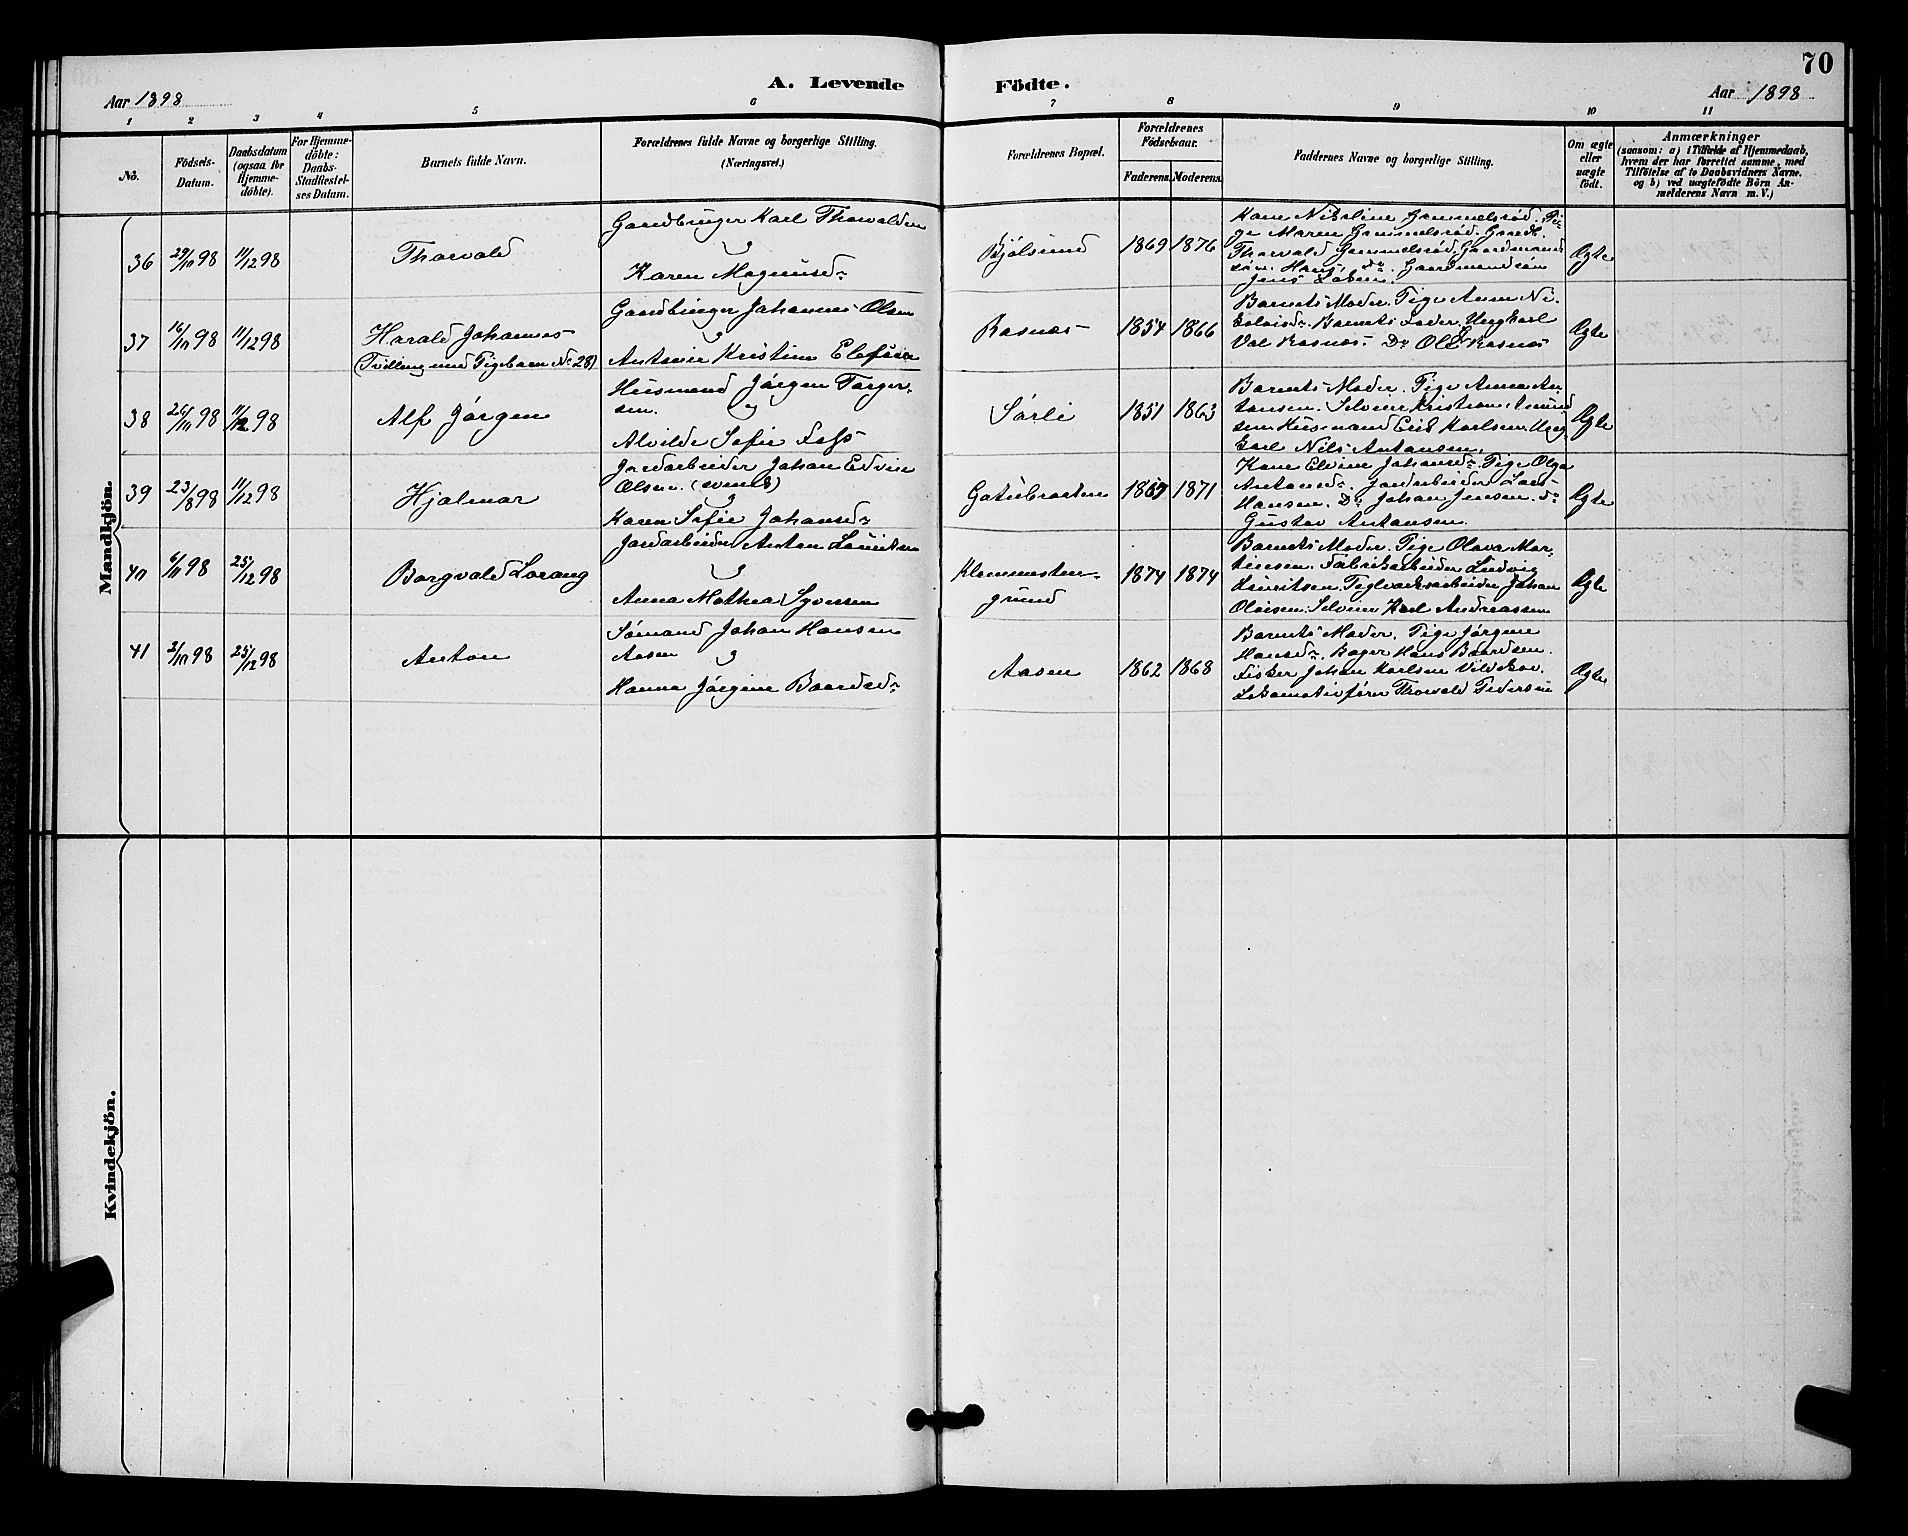 70
Aar 1898
A. Levende
Födte.
Aar 1898
1 2 3 4 5 6 7 8 9 10 11
No.
Födsels-
Datum.
Daabsdatum
(ogsaa for
Hjemme-
döbte).
For Hjemme-
döbte:
Daabs-
Stadfæstel-
ses Datum.
Barnets fulde Navn.
Forældrenes fulde Navne og borgerlige Stilling.
(Næringsvei.)
Forældrenes Bopæl.
Forældrenes
Födselsaar.
Faderens. Moderens.
Faddernes Navne og borgerlige Stilling.
Om ægte
eller
uægte
födt.
Anmærkninger
(saasom: a) i Tilfælde af Hjemmedaab,
hvem der har forrettet samme, med
Tilföielse af to Daabsvidners Navne.
og b) ved uægtefödte Börn An-
melderens Navn m. V.)
Mandkjön.
36 29/10 98 11/12 98
Thorvald
Gaardbruger Karl Thorvaldsen
og
Karen Magnusdr
Bjölsund
1869 1876
Kone Nikoline Gammelsröd. Pi-
ge Maren Gammelsröd. Gaardb.
Thorvald Gammelsröd. Gaardmands
sön Hans do. Gaardmandssön
Jens
Ægte
37 16/10 98 11/12 98
Harald Johannes
(Tvilling med Pigebarn No 28)
Gaardbruger Johannes Olsen
og
Antonie Kristine
Rasnæs
1854 1866
Barnets Moder. Pige Anne Ni-
Barnets Fader. Ungkarl
Rasnæs. Do Ole Rasnæs
Ægte
38 26/10 98 11/12 98
Alf Jörgen
Husmand Jörgen Torger-
sen.
og
Alvilde Sofie Foss
Sörli
1851 1863
Barnets Moder. Pige Anna An-
tonsen. Selveier Kristian Amund
sen Husmand Erik Karlsen. Ung
karl Nils Antonsen.
Ægte
39 23/8 98 11/12 98
Hjalmar
Jordarbeider Johan Edvin
Olsen. (svensk)
og
Karen Sofie Johansdr
1871
Kone Elvine Johansdr. Pige Olga
Antonsdr. Jordarbeider Lars
Hansen. Do Johan Jensen. do
Gustav Antonsen.
Ægte
40 6/11 98 25/12 98
Borgvald Lorang
Jordarbeider Anton Lauritsen
og
Anna Mathea Syversen
Klemmetsten-
grund
1874 1874
Barnets Moder. Pige Olava Mar-
tinsen. Fabrikarbeider Ludvig
Lauritsen. Teglværksarbeider Johan
Olaisen. Selveier Karl Andreassen
Ægte
41 2/10 98 25/12 98
Anton
Sömand Johan Hansen
Aasen
og
Hanna Jörgine Baardsdr
Aasen
1862 1868
Barnets Moder. Pige Jörgine
Hansdr. Bager Hans Baardsen.
Fisker Johan Karlsen Vildskov.
Lokomotivförer Thorvald Pedersen
Ægte
Kvindekjön.